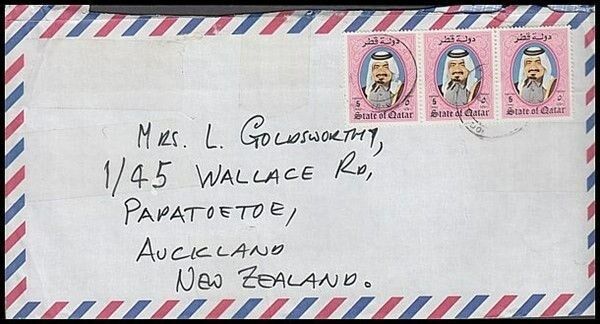 دولة قطر دولة قطر دولة قطر
5 ٥ 5 ٥ 5 ٥
State of Qatar State of Qatar State of Qatar
MRS. L. GOLDSWORTHY,
1/45 WALLACE RD,
PAPATOETOE,
AUCKLAND
NEW ZEALAND.